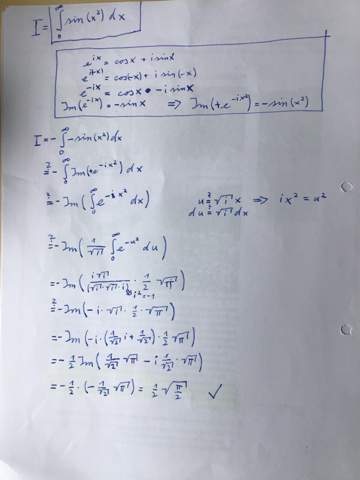 I = ∫₀^∞ sin(x²) dx
e^{ix} = cosx + i sinx
e^{i(-x)} = cos(-x) + i sin(-x)
e^{-ix} = cosx - i sinx
Im(e^{-ix}) = -sinx ⇒ Im(+e^{-ix²}) = -sin(x²)
I = -∫₀^∞ -sin(x²) dx
?= -∫₀^∞ Im(+e^{-ix²}) dx
?= -Im(∫₀^∞ e^{-ix²} dx) u ?= √i x ⇒ ix² = u²
du ?= √i dx
?= -Im(1/√i ∫₀^∞ e^{-u²} du)
= -Im(i√i/(√i·√i·i) · 1/2 √π)
i² = -1
?= -Im(-i · √i · 1/2 · √π)
= -Im(-i · (1/√2 i + 1/√2) · 1/2 √π)
= -1/2 Im(1/√2 √π - i 1/√2 · √π)
= -1/2 · (-1/√2 √π) = 1/2 √(π/2) ✓